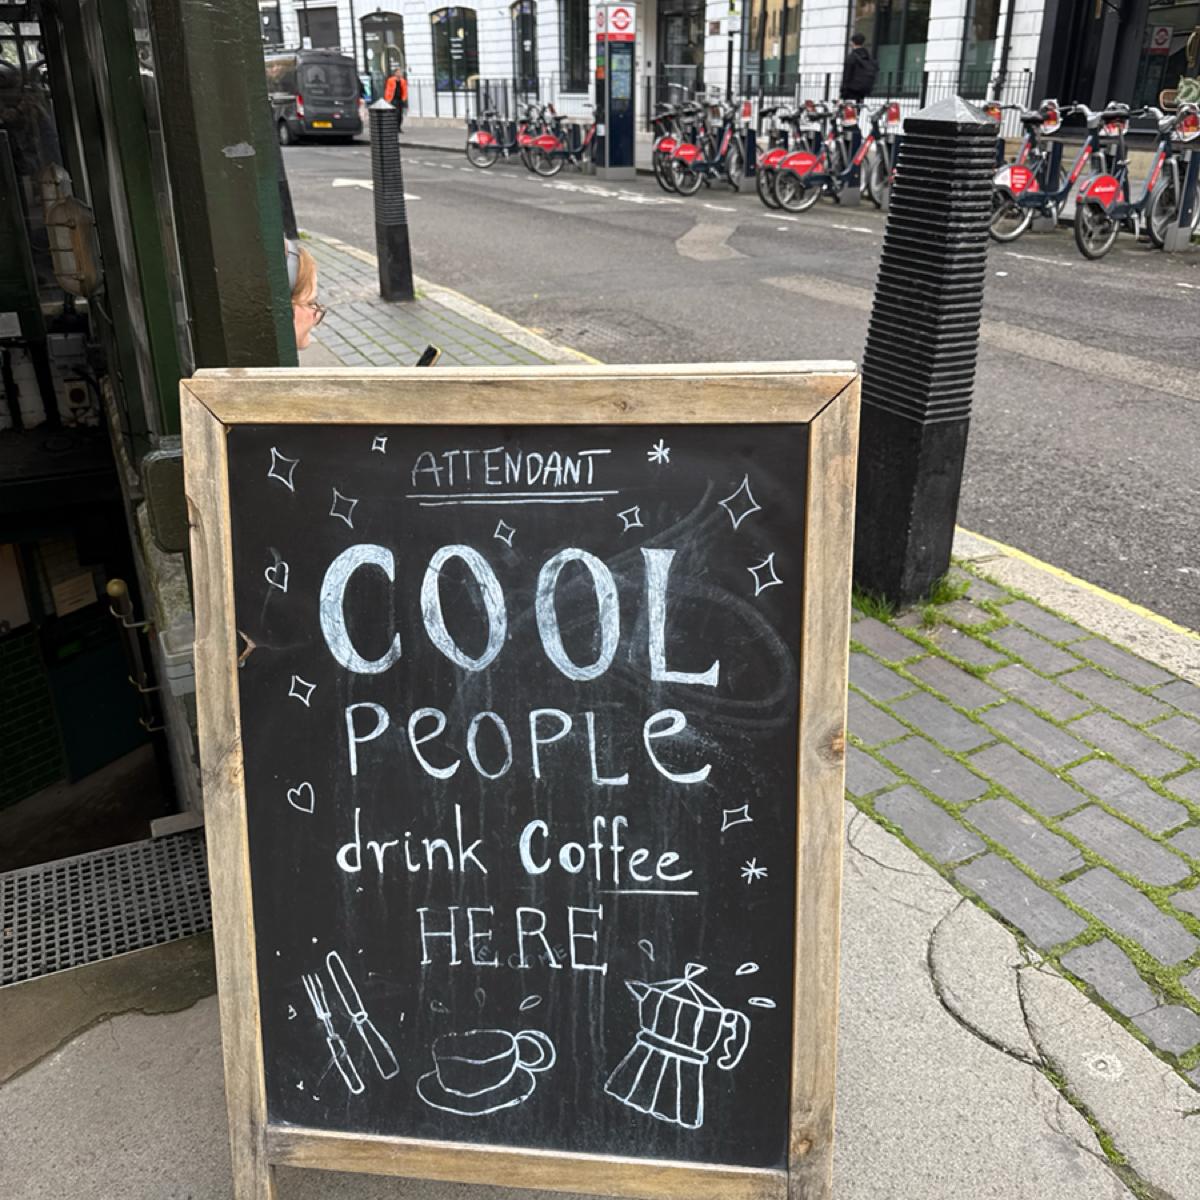 ATTENDANT
COOL
PEOPLE
drink Coffee
HERE